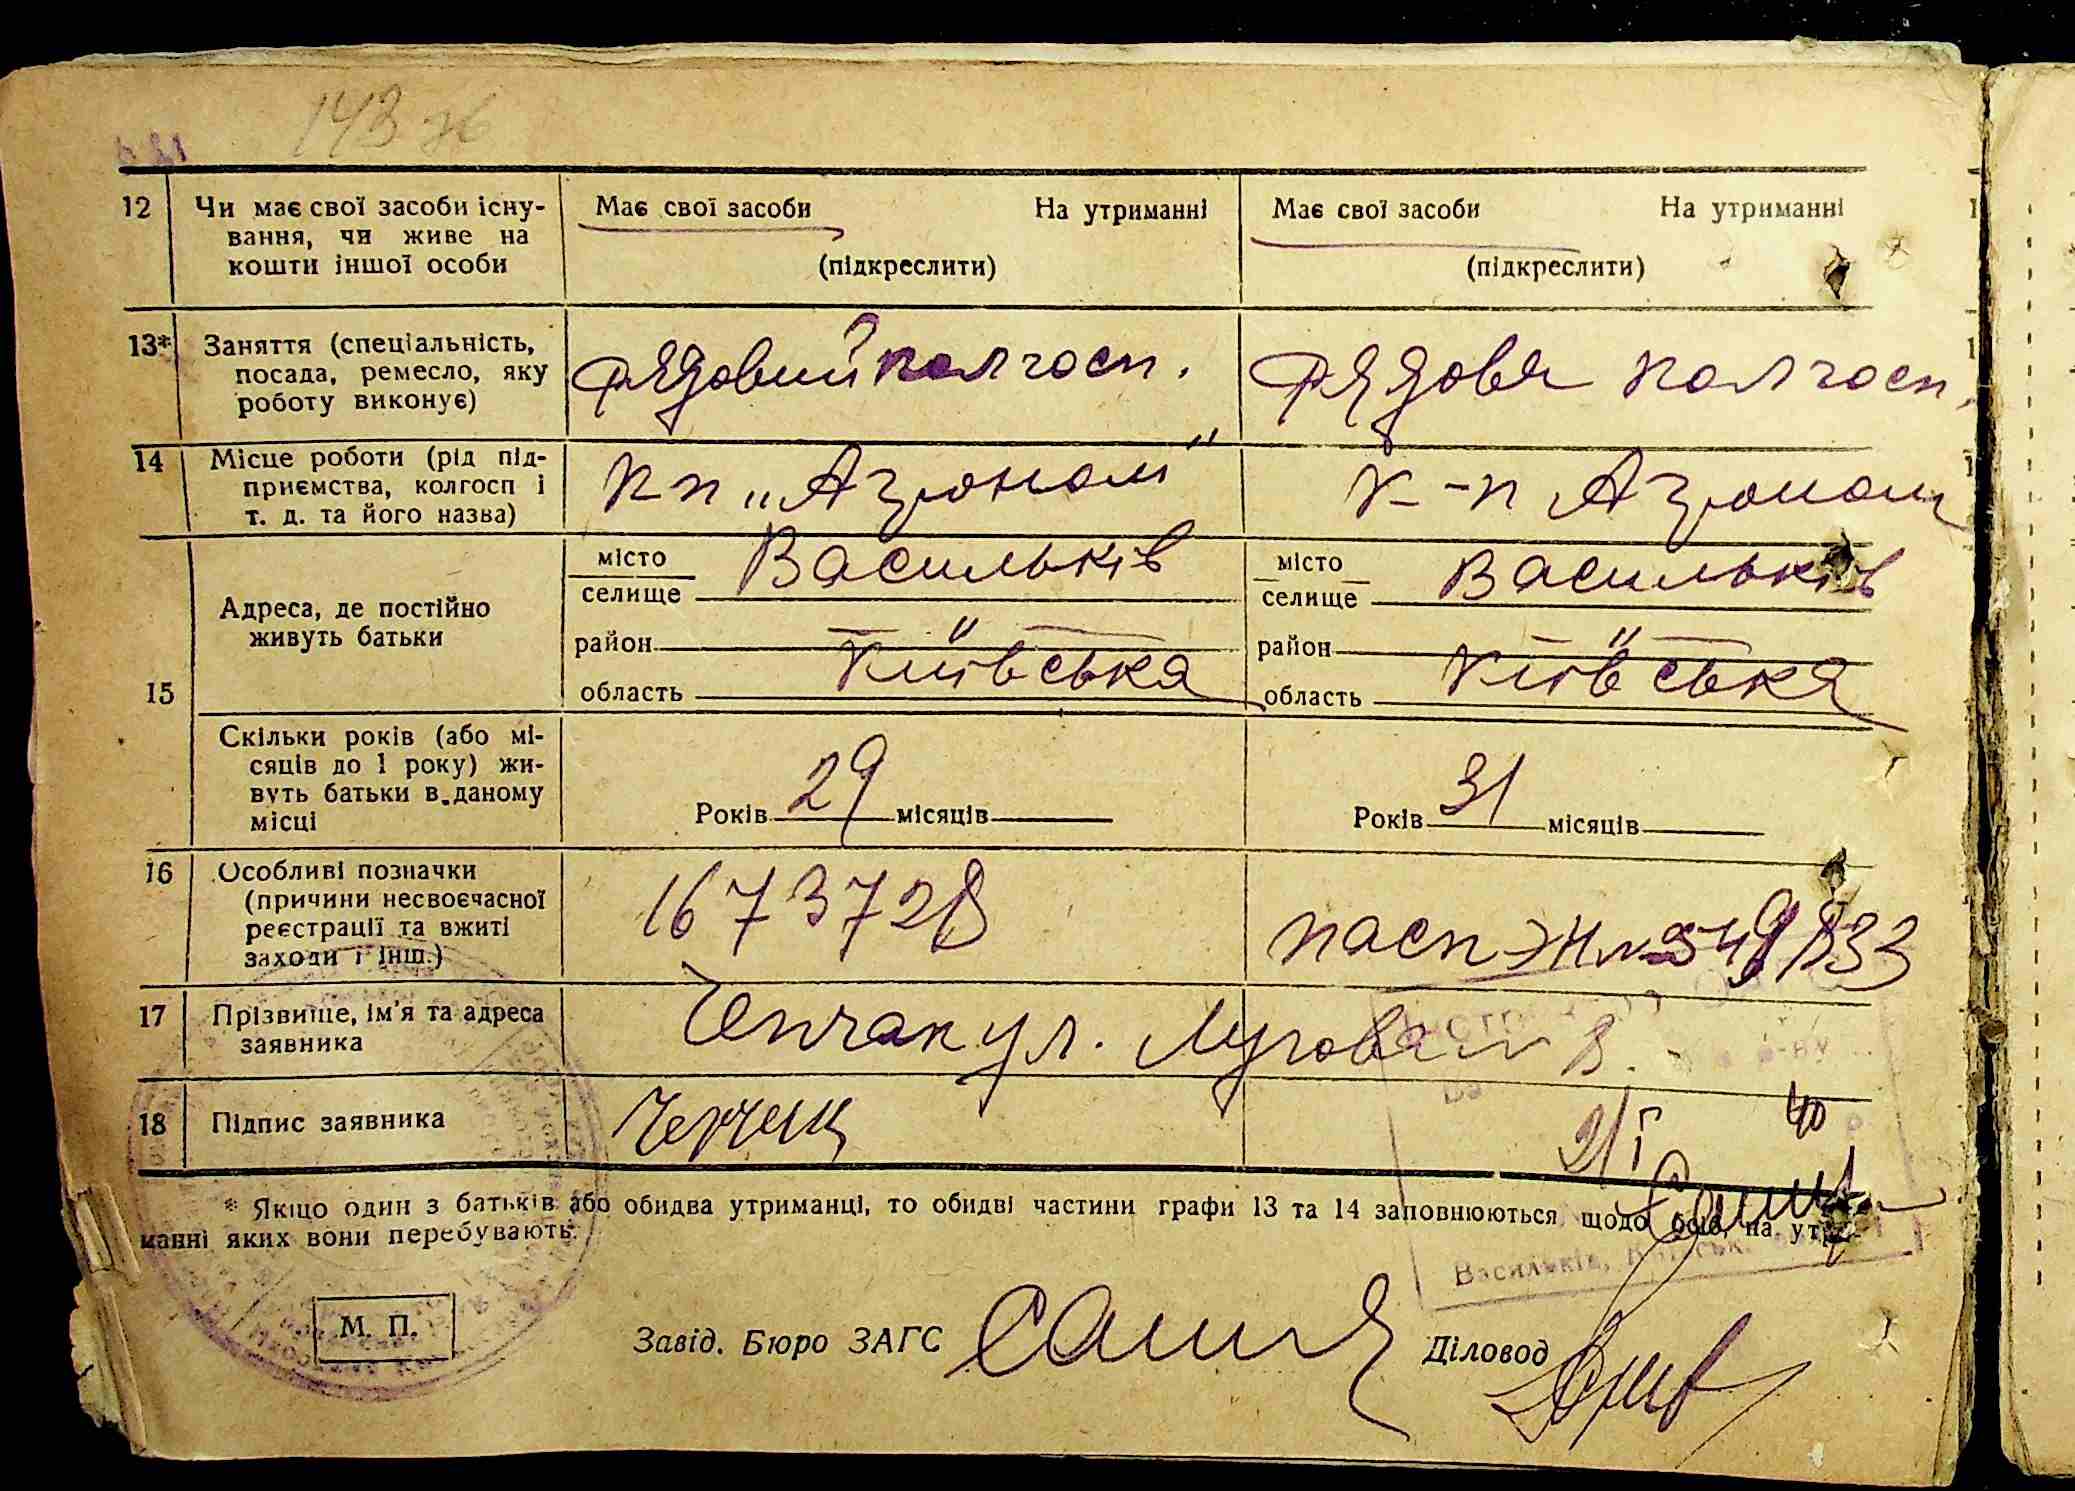 143 ж
12 Чи має свої засоби існу- Має свої засоби На утриманні Має свої засоби На утриманні
вання, чи живе на
кошти іншої особи (підкреслити) (підкреслити)
13* Заняття (спеціальність,
посада, ремесло, яку рядовий колгосп. рядова колгосп.
роботу виконує)
14 Місце роботи (рід під-
приємства, колгосп і к-п „Агроном" к-п Агроном
т. д. та його назва)
місто Васильків місто Васильків
Адреса, де постійно селище селище
живуть батьки район — " — район — " —
15 область Київська область Київська
Скільки років (або мі-
сяців до 1 року) жи-
вуть батьки в даному Років 29 місяців Років 31 місяців
місці
16 Особливі позначки
(причини несвоєчасної 1673728 пасп ЭН № 549833
реєстрації та вжиті
заходи і інш.)
17 Прізвище, ім'я та адреса ул. Луговая № 8.
заявника
18 Підпис заявника 21/I 40
* Якщо один з батьків або обидва утриманці, то обидві частини графи 13 та 14 заповнюються щодо осіб, на утри-
манні яких вони перебувають.
Васильків,
М. П. Завід. Бюро ЗАГС Діловод